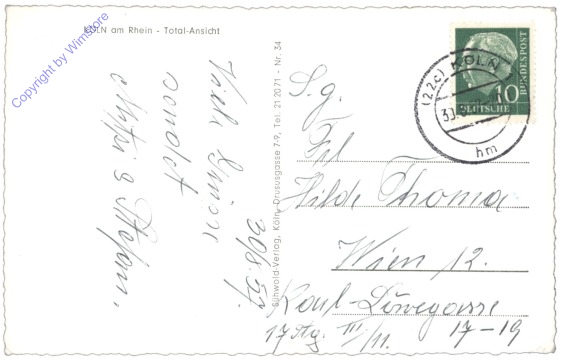 KÖLN am Rhein - Total-Ansicht
Copyright by Wimstore
Viele Grüsse
sendet
30/8.57.
Sühwold-Verlag, Köln, Drususgasse 7-9, Tel. 21 20 71 - Nr. 34
(22c) KÖLN
hm
10
DEUTSCHE
BUNDESPOST
S.g.
Frl
Hilde Thoma
Wien 12.
Karl-Löwegasse
17-19